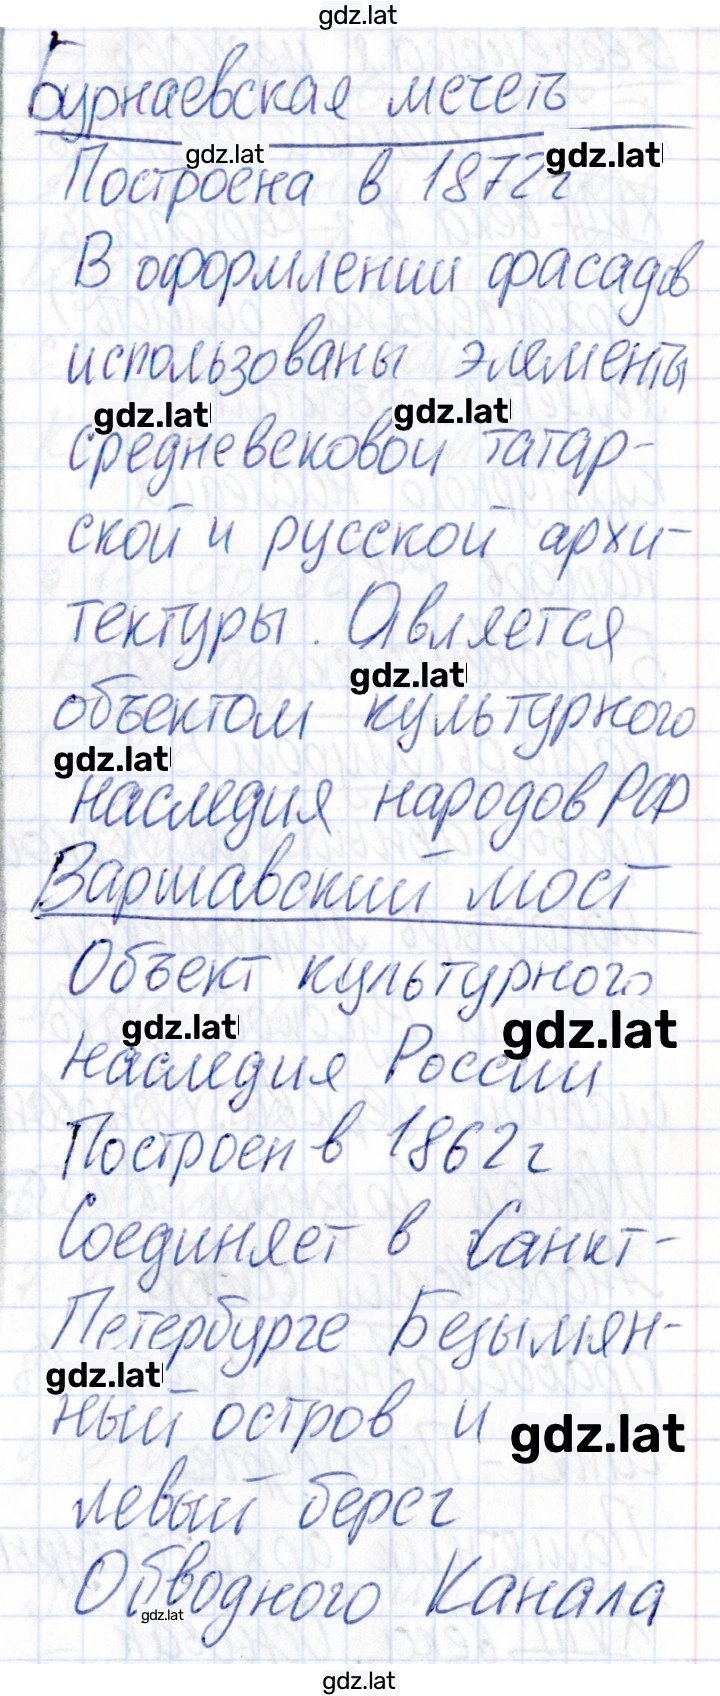 gdz.lat
Бурнаевская мечеть
gdz.lat
gdz.lat
Построена в 1872г
В оформлении фасадов
использованы элементы
gdz.lat
gdz.lat
средневековой татар-
ской и русской архи-
тектуры. Является
gdz.lat
объектом культурного
gdz.lat
наследия народов РФ
Варшавский мост
Объект культурного
gdz.lat
gdz.lat
наследия России
Построен в 1862г
Соединяет в Санкт-
Петербурге Безымян-
gdz.lat
ный остров и
gdz.lat
левый берег
Обводного Канала
gdz.lat
gdz.lat